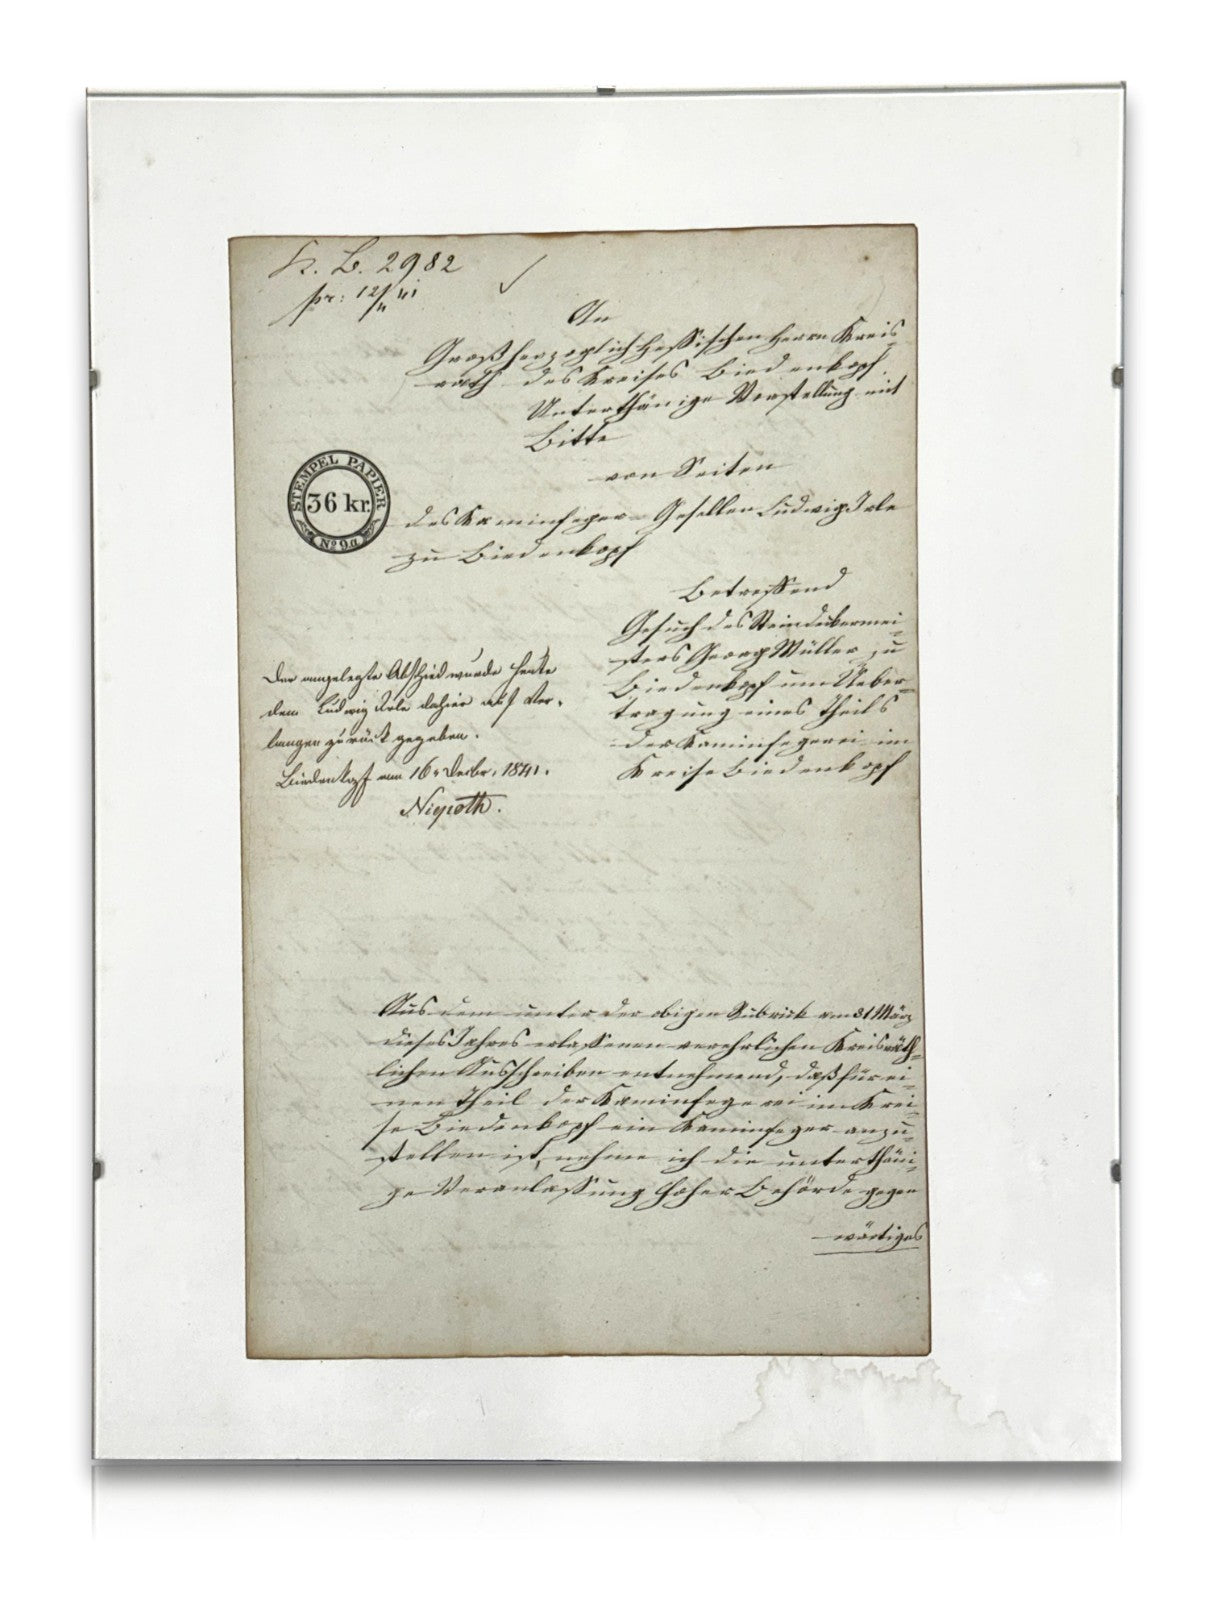 K. B. 2982
pr: 12/4 41
An
Großherzoglich Hessischen Herrn Kreis-
rath des Kreises Biedenkopf.
Unterthänige Vorstellung mit
Bitte
von Seiten
des Kaminfeger-Gesellen Ludwig Irle
zu Biedenkopf
STEMPEL PAPIER
36 kr.
No 9a
Betreffend
Gesuch des Steindeckermei-
sters Georg Müller zu
Biedenkopf um Ueber-
tragung eines Theils
der Kaminfegerei im
Kreise Biedenkopf
Der angelegte Abschied wurde heute
dem Ludwig Irle dahier auf Ver-
langen zurück gegeben.
Biedenkopf am 16. Decbr. 1841.
Aus dem unter der obigen Rubrick vom 31 März
dieses Jahres erlassenen verehrlichen Kreisräth-
lichen Ausschreiben entnehmend, daß für ei-
nen Theil der Kaminfegerei im Krei-
se Biedenkopf ein Kaminfeger anzu-
stellen ist, nehme ich die unterthäni-
ge Veranlassung hoher Behörde gegen
wärtiges